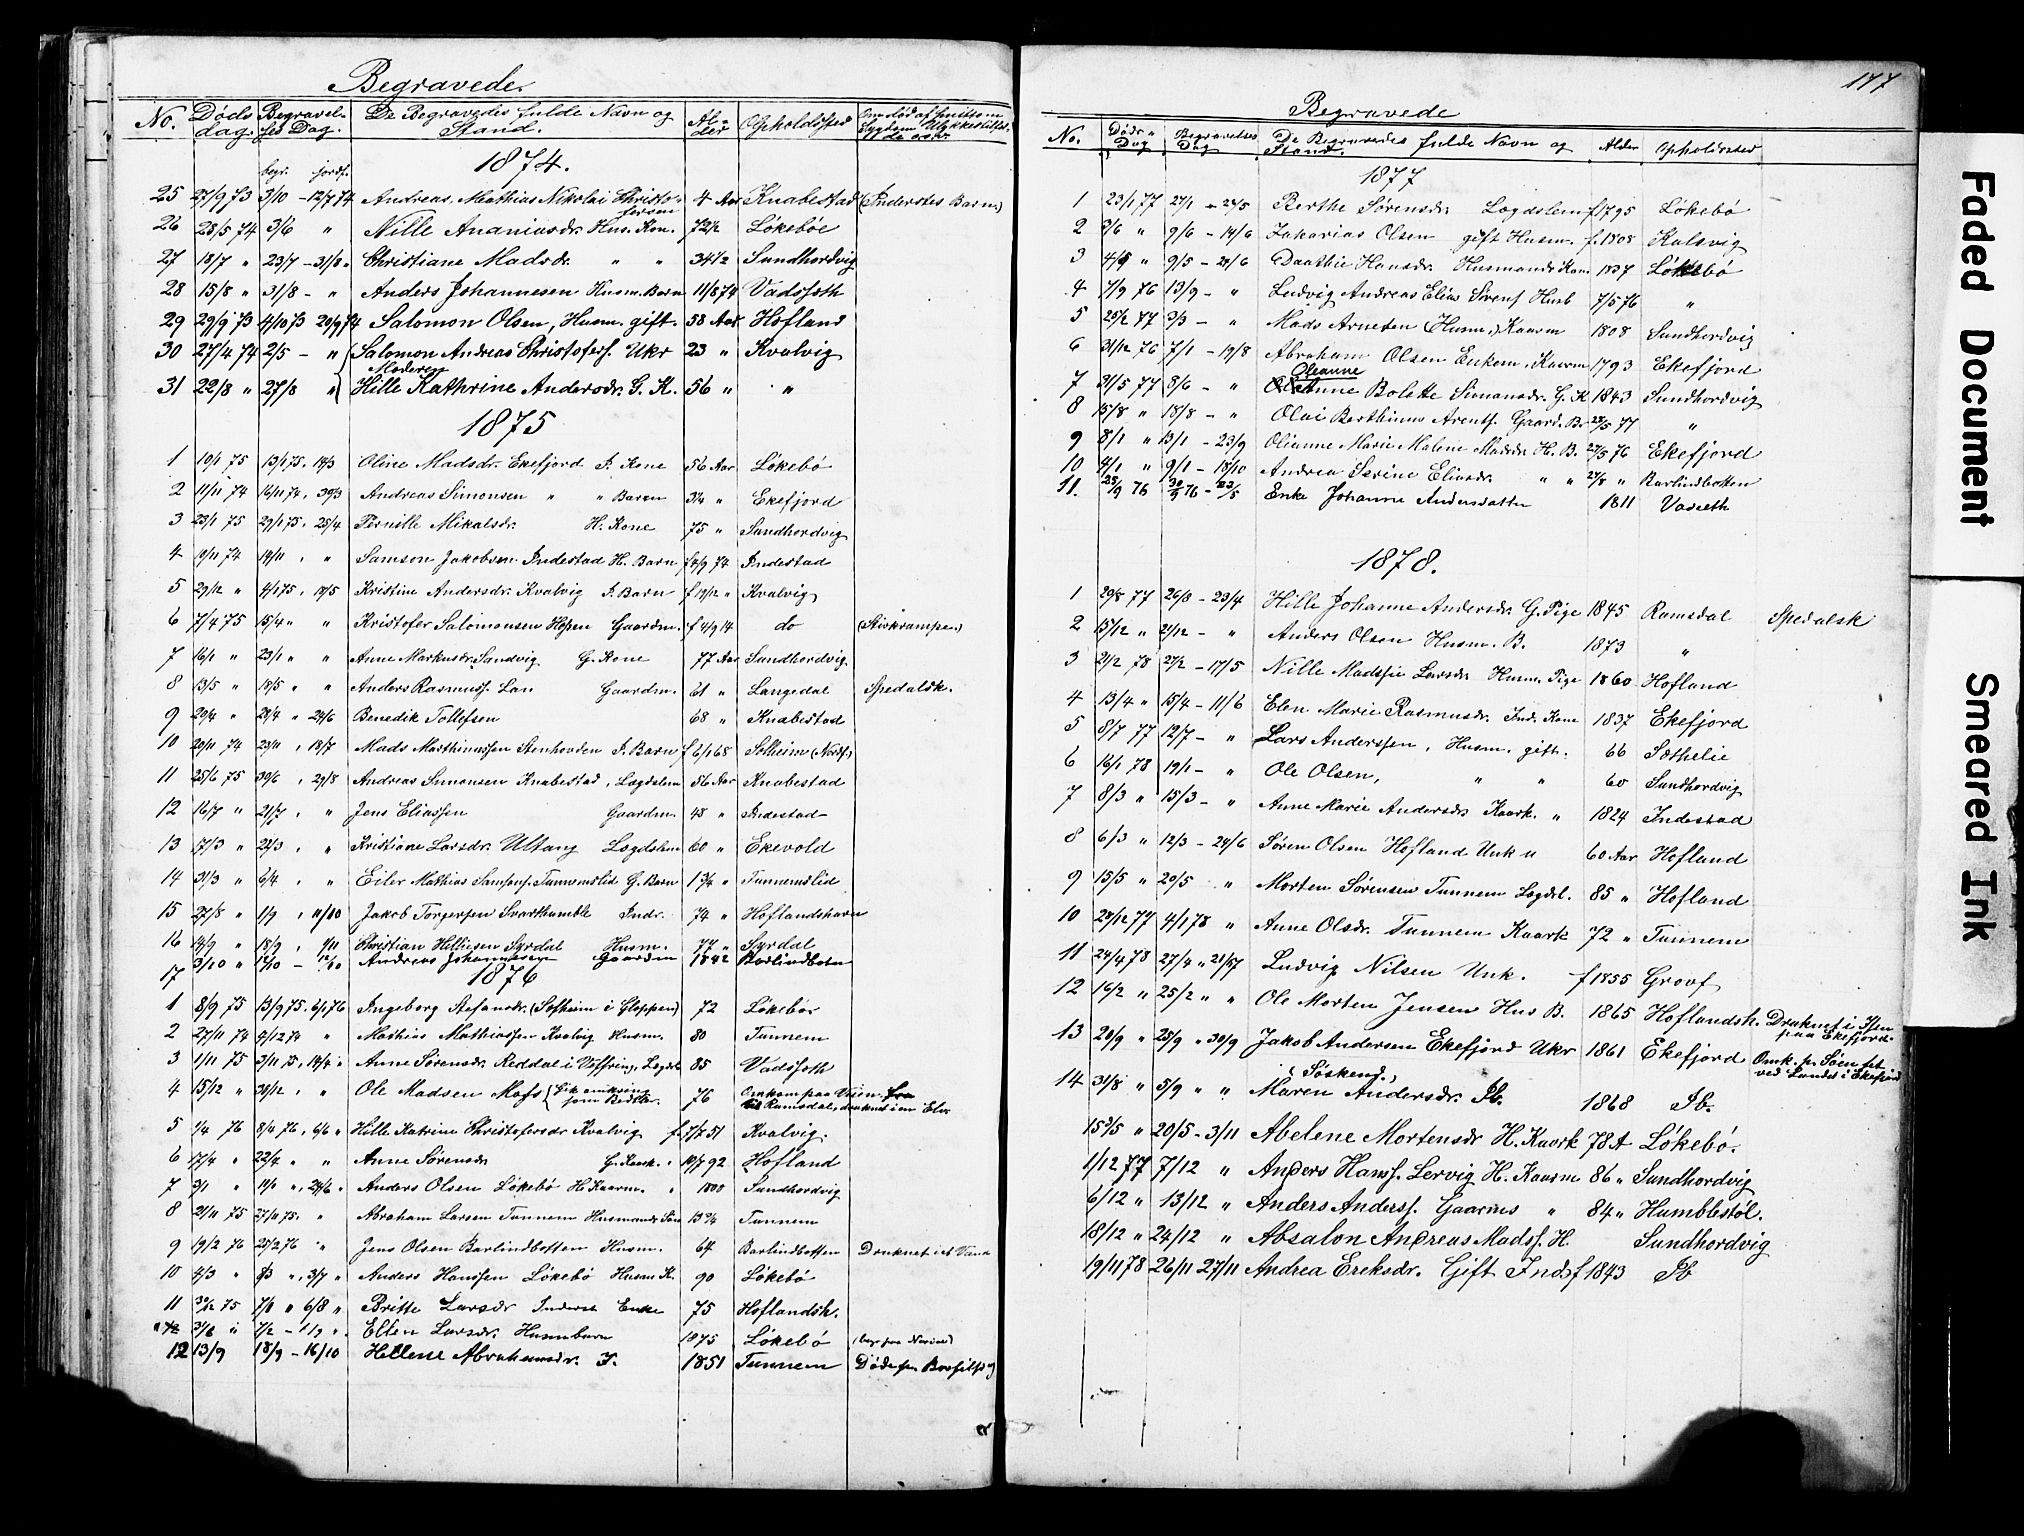 Begravede.
No. Döds dag. Begravel- ses Dag. De Begravedes fulde Navn og Stand. Al- der Opholdssted
1874.
begr. jordf.
25 27/9 73 3/10 - 12/7 74 Andreas Mathias Nikolai Christo- 4 Aar Knabestad (Inderstes Barn)
fersen
26 28/5 74 3/6 " Nille Ananiasdr. Hus. Kon. 72½ Løkebøe
27 18/7 " 23/7 - 31/8 " Christiane Madsdr. " " 34½ Sundhordvig
28 15/8 " 31/8 - " Anders Johannesen Husm. Barn 11/8 74 Vadsfoth
29 29/9 73 4/10 73 20/9 74 Salomon Olsen, Husm. gift. 58 Aar Hofland
30 27/4 74 2/5 - " Salomon Andreas Christofers. Ukr 23 " Kvalvig
Moderen
31 22/8 " 27/8 " Hille Kathrine Andersdr. G. K. 56 " "
1875
1 10/1 75 13/1 75. Oline Madsdr. Ekefjord I. Kone 56 Aar Løkebø
2 11/11 74 16/11 74, Andreas Simonsen " " Barn 3¼ " Ekefjord
3 23/1 75 29/1 75, 25/4 Pernille Mikalsdr. H. Kone 75 " Sundhordvig
4 74 " " Samson Jakobsen Indestad H. Barn f 4/9 74 Indestad
5 29/12 " 4/1 75, 19/5 Kristine Andersdr. Kvalvig I. Barn f 19/12 " Kvalvig
6 7/4 75 15/4 " " Kristofer Salomonsen Hopen Gaardm. f 4/9 14 do
7 16/1 " 23/1 " " Anne Markusdr. Sandvig. G. Kone 77 Aar Sundhordvig.
8 13/5 " 19/5 " " Anders Rasmuss. Lan Gaardm. 61 " Langedal Spedalsk.
9 20/4 " 29/4 " 24/6 Benedik Tollefsen 68 " Knabestad
10 20/11 74 , 18/7 Mads Marthinussen Stenhovden I. Barn f 6/1 68 Solheim (Nordf.)
11 25/6 75 30/6 , 29/8 Andreas Simonsen Knabestad, Lægdslem 56 Aar Knabestad
12 16/7 " 21/7 , " Jens Eliassen Gaardm. 48 " Indestad
13 17/3 " 22/3 , " Kristiane Larsdr. Ultang Lægdslem 60 " Ekevold
14 31/3 " 6/4 " " Eiler Mathias Samsons. Tunnemslid G. Barn 1¾ " Tunnemslid
15 27/8 " 1/9 , 11/10 Jakob Torgersen Svarthumble Indr. 74 " Hoflandshavn
16 14/9 " 18/9 , 1/11 Christian Helliesen Syrdal Husm. 77 " Syrdal
17 3/10 " 12/10 - Andreas Johannesen Gaardm 1842 Barlindbotn
1876
1 8/9 75 13/9 75. 6/1 76 Ingeborg Stefansdr. (Solheim i Gloppen) 72 Løkebør
2 27/11 74 4/12 74 " Mathias Mathiassen Kvalvig Husm. 80 Tunnem
3 1/11 75 3/11 75, " Anne Sørensdr. Reddal i Veffring, Lægdsl 85 Vadsfoth
4 15/12 " 20/12 , " Ole Madsen Moss (Gik omkring som Betler. 76 Omkom paa Veien fra
til Ramsdal, druknet i en Elv
5 1/4 76 8/4 76, 6/6 " Hille Katrine Christofersdr Kvalvig f. 7/7 51 Kvalvig.
6 17/4 " 22/4 " " Anne Sørensdr G. Kaark. " 10/7 92 Hofland
7 3/1 " , 24/6 " Anders Olsen Løkebø H. Kaarm. " 1800 Sundhordvig
8 21/11 75 27/11 75. " Abraham Larsen Tunnem Husmands Søn 13 ¾ Tunnem
9 19/2 76 25/2 76 " Jens Olsen Barlindbotten Husm. 64 Barlindbotten Druknet i et Vand
10 4/3 " , 3/7 " Anders Hanssen Løkebø Husm K. 90 Løkebø
11 75 " 6/8 " Britte Larsdr Inderst Enke 75 Hoflandsh.
Ellen Larsdr. Husmbarn 1875 Løkebø
12 13/9 18/9 - 16/10 Hellene Abrahamsdr. I. 1851 Tunnem
177
Begravede
No. Døds- Dag Begravelses Dag De Begravedes fulde Navn og Stand. Alder Opholdssted
1877
1 23/1 77 27/1 - 24/5 Berthe Sørensdr Lægdslem f 1795 Løkebø
2 2/6 " 9/6 - 14/6 Zakarias Olsen gift Husm. f. 1808 Kalsvig
3 " 9/5 - Daathie Hansdr. Husmands Kon 1837 Løkebø
4 7/9 76 13/9 - " Ludvig Andreas Elias Sørens Husb 7/5 76 "
5 25/2 77 3/3 - " Mads Arnesen (Husm,) Kaarm 1808 Sundhordvig
6 31/12 76 7/1 - 19/8 Abraham Olsen Enkem. Kaarm 1793 Ekefjord
Oleanne
7 31/5 77 8/6 - " Bolette Simonsdr. G. K 1843 Sundhordvig
8 15/8 " 18/8 - " Olai Berthinus Arents. Gaard. Br 28/5 77 "
9 8/1 " 13/1 - 23/9 Olianne Marie Malene Madsdr H. B. 27/5 76 Ekefjord
10 4/1 " 9/1 - 18/10 Andrea Serine Eliasdr. " " 27/8 " Barlindbotten
11. 25/9 76 30/9 76 - 23/5 Enke Johanne Andersdatter 1811 Vadseth
1878.
1 20/8 77 26/8 - 23/4 Hille Johanne Andersdr. G. Pige 1845 Ramsdal Spedalsk
2 15/12 " 21/12 - " Anders Olsen Husm. B. 1873 "
3 21/2 78 27/2 - 17/5 Nille Madsfie Larsdr Husm. Pige 1860 Hofland
4 13/4 " 15/4 - 11/6 Elen Marie Rasmusdr. Ind. Kone 1837 Ekefjord
5 8/7 77 12/7 - " Lars Anderssen, Husm. gift. 66 Sæthelie
6 16/1 78 19/1 - " Ole Olsen, " " 60 Sundhordvig
7 8/3 " 15/3 - " Anne Marie Andersdr Kaark. " 1824 Indestad
8 6/3 " 12/3 - 24/6 Søren Olsen Hofland Unk u 60 Aar Hofland
9 15/5 " 20/5 " Morten Sørensen Tunnem Lægdsl. 85 " Hofland
10 28/12 77 4/1 78 " Anne Olsdr. Tunnem Kaark 72 " Tunnem
11 24/4 78 27/4 " Ludvig Nilsen Unk. f 1855 Groof
12 16/2 " 25/2 " " Ole Morten Jensen Hus B. 1865 Hoflandsh. Druknet i Isen
paa Ekefjord.
13 20/9 " 25/9 " 30/9 Jakob Andersen Ekefjord Ukr 1861 Ekefjord Omk. pa Søen tet
ved Landet i Ekefjord
(Søskend.)
14 31/8 " 5/9 " " Maren Andersdr. Ib. 1868 Ib.
15 " 20/5 - 3/11 Abelene Mortensdr H. Kaark 78 A Løkebø.
1/12 77 7/12 " Anders Hanss. Lervig H. Kaarm 86 " Sundhordvig
6/12 " 13/12 " Anders Anderss. Gaarms " 84 " Humblestøl.
18/12 " 24/12 " Absalon Andreas Madss. H. Sundhordvig
19/11 78 26/11 27/11 Andrea Ereksdr. Gift Inds f 1843 Ib
Faded Document
Smeared Ink